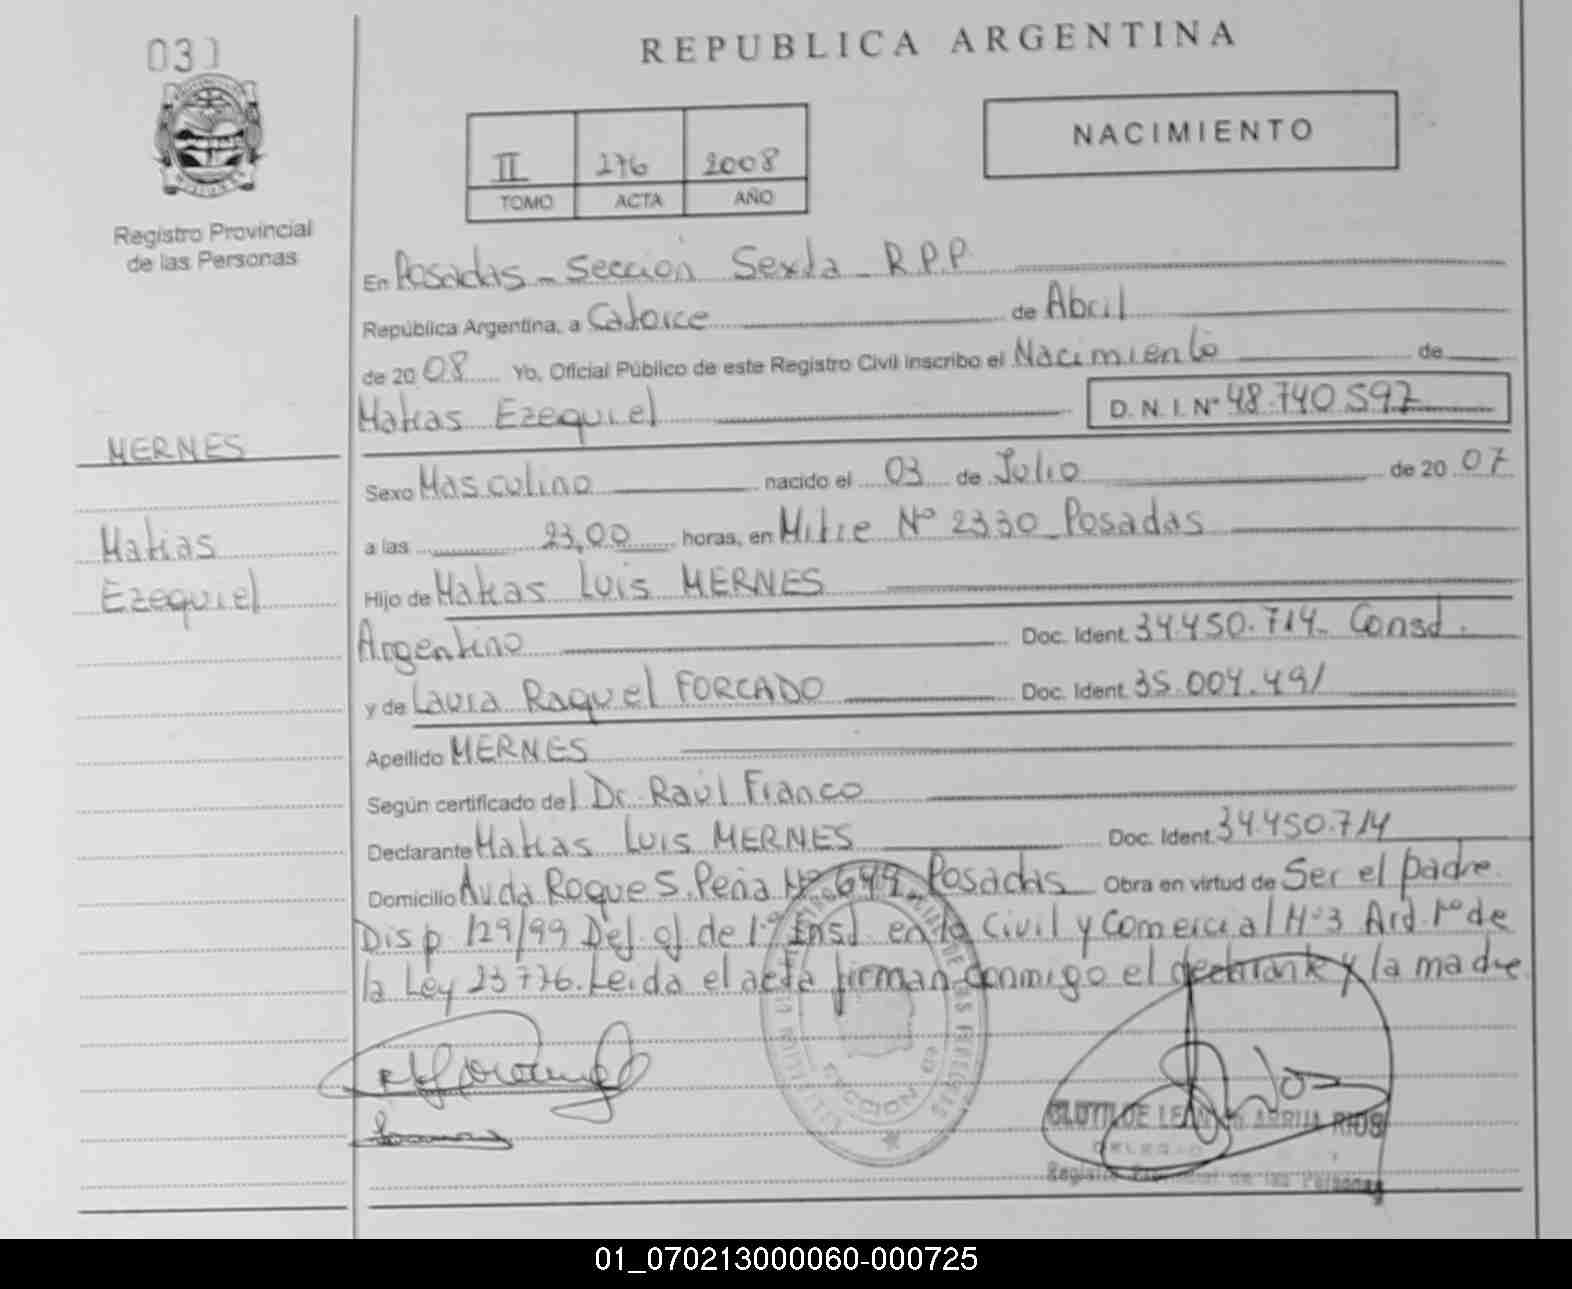 031
REPUBLICA ARGENTINA
II 276 2008
TOMO ACTA AÑO
NACIMIENTO
Registro Provincial
de las Personas
En Posadas - Sección Sexta - R.P.P
República Argentina, a Catorce de Abril
de 20 08 Yo, Oficial Público de este Registro Civil inscribo el Nacimiento de
Matias Ezequiel D.N.I.Nº 48.740.597
MERNES
Sexo Masculino nacido el 03 de Julio de 20 07
Matias
a las 23,00 horas, en Mitre Nº 2330 - Posadas
Ezequiel
Hijo de Matias Luis MERNES
Argentino Doc. Ident. 34.450.714 - Const.
y de Laura Raquel FORCADO Doc. Ident. 35.004.491
Apellido MERNES
Según certificado del Dr. Raúl Franco
Declarante Matias Luis MERNES Doc. Ident. 34.450.714
Domicilio Avda Roque S. Peña Nº 649 - Posadas Obra en virtud de Ser el padre
Disp. 129/99 Def. of. de 1º Inst. en lo Civil y Comercial Nº3 Art. 1º de
la Ley 23776. Leida el acta firman conmigo el declarante y la madre
SECCION
RIOS
Registro Provincial de las Personas
01_070213000060-000725